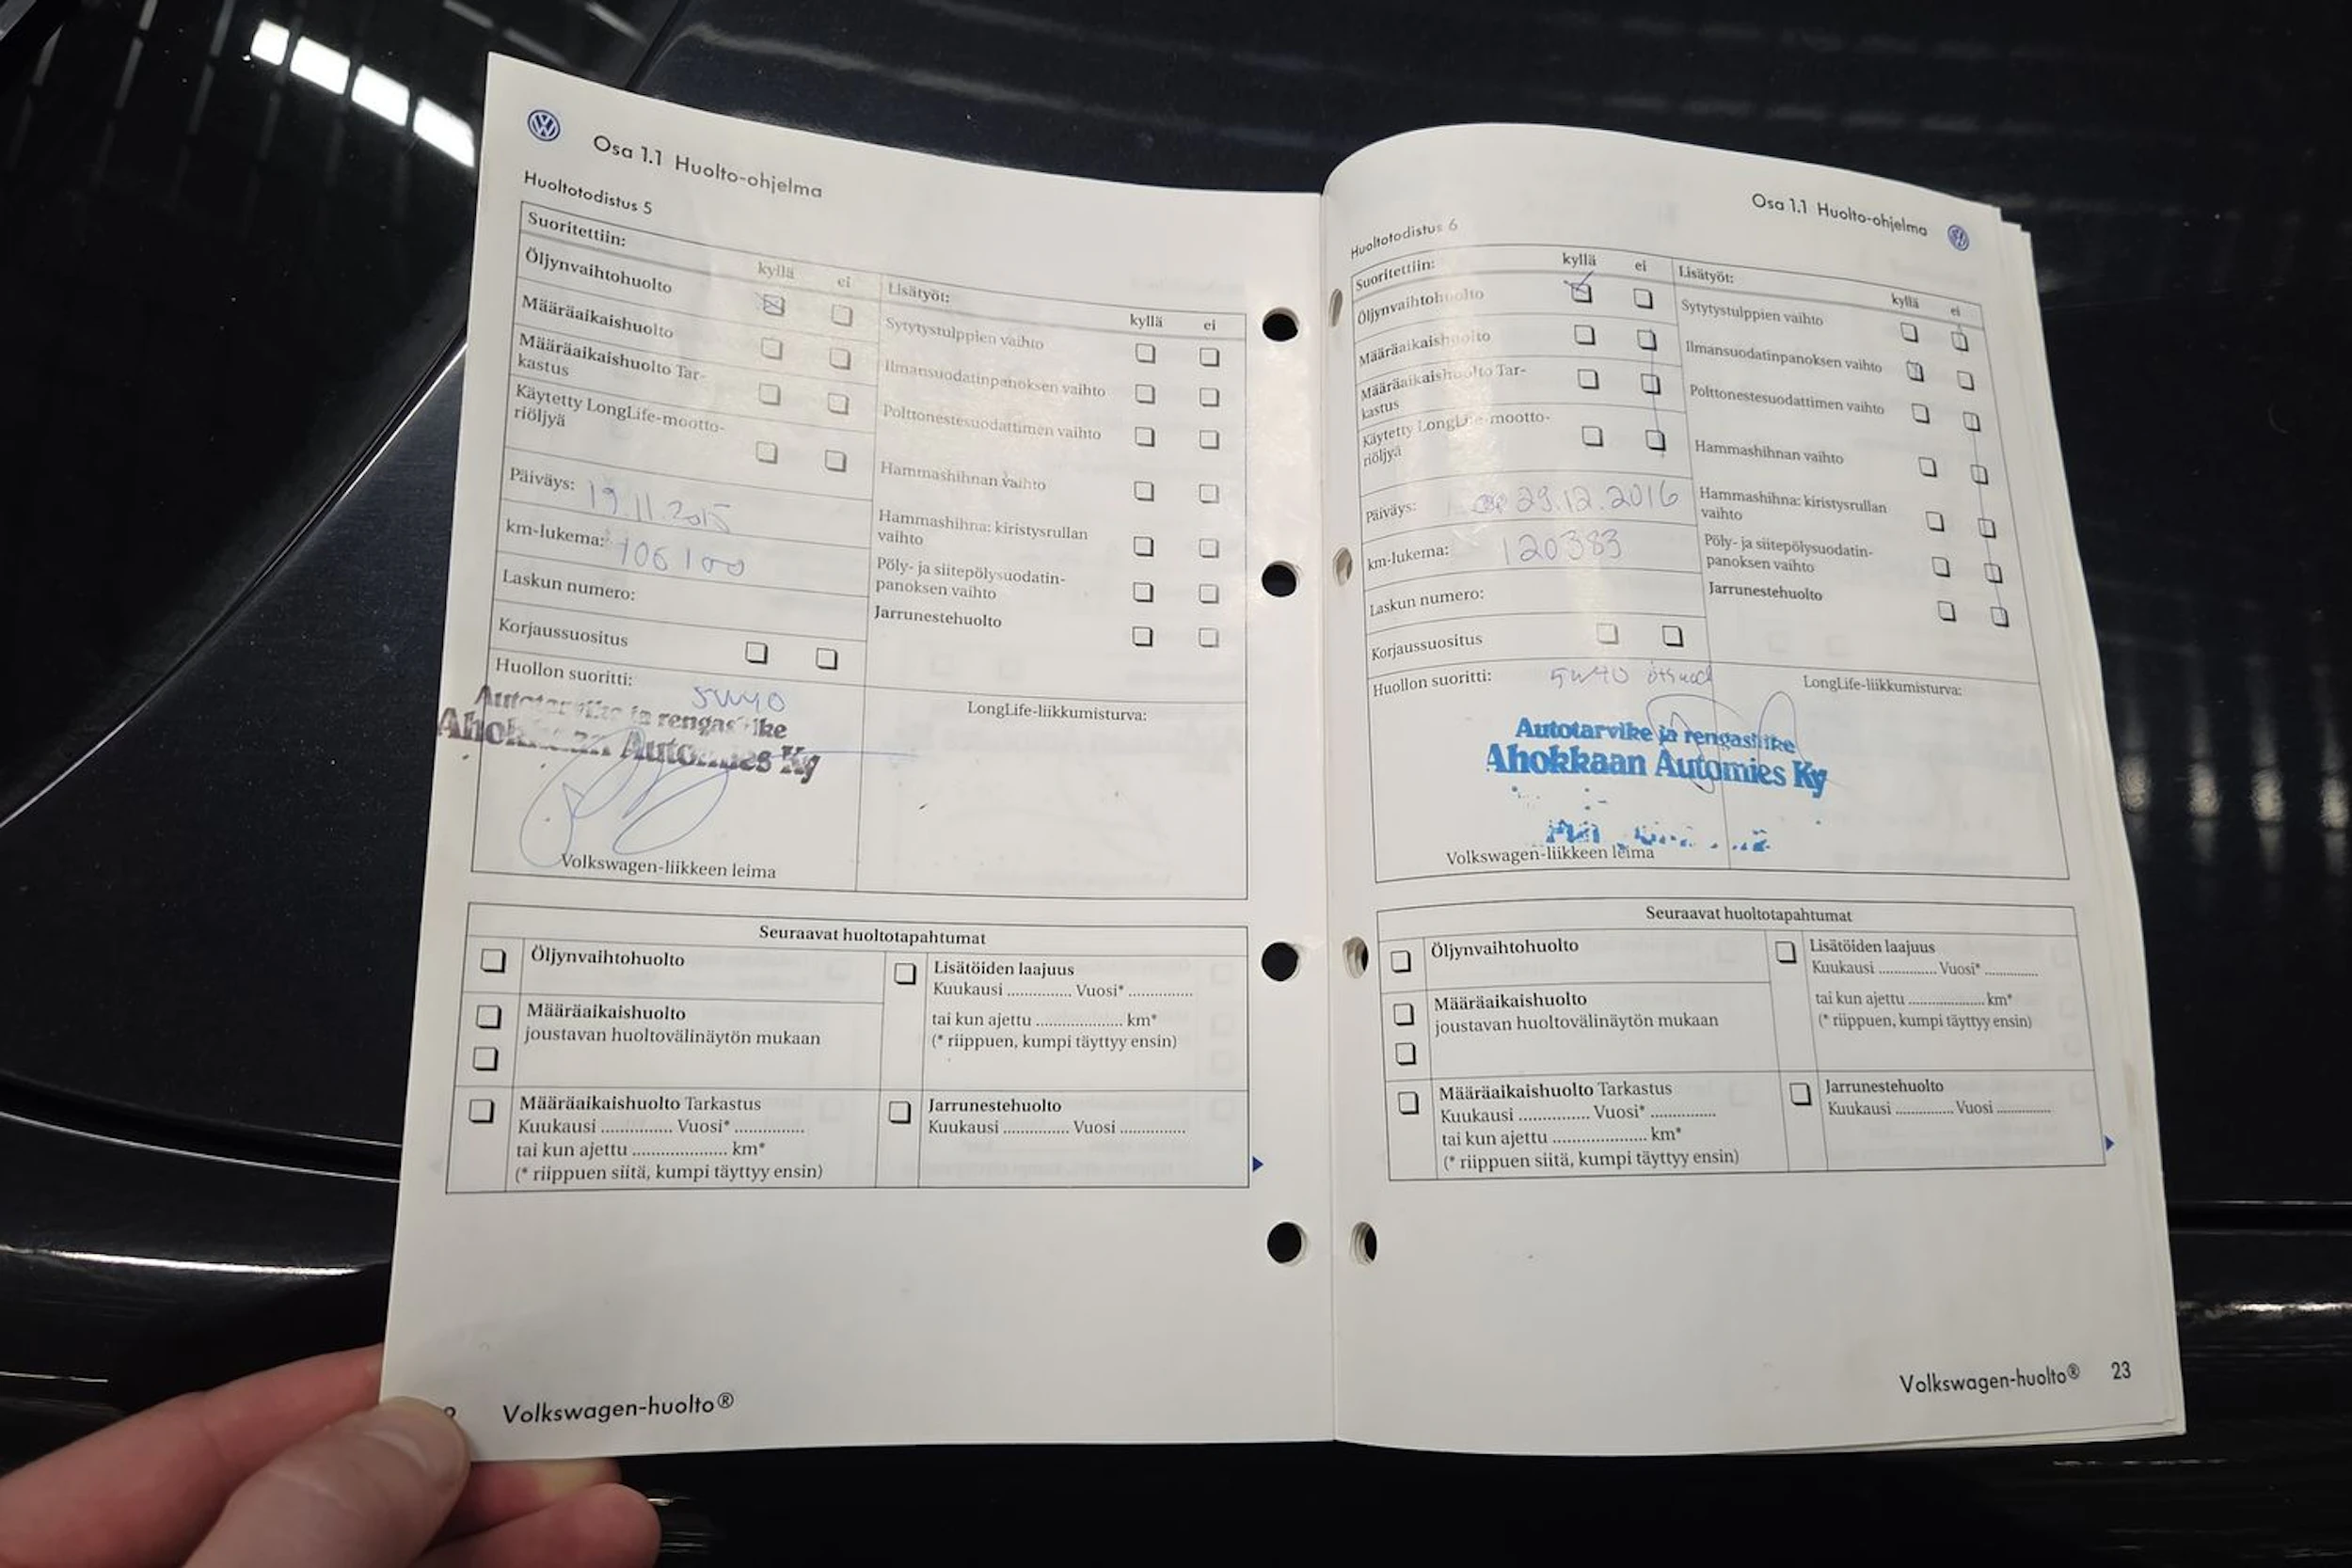 Osa 1.1 Huolto-ohjelma
Huoltotodistus 5
Suoritettiin:
kyllä ei
Öljynvaihtohuolto
Määräaikaishuolto
Määräaikaishuolto Tar-
kastus
Käytetty LongLife-mootto-
riöljyä
Päiväys: 19.11.2015
km-lukema: 106100
Laskun numero:
Korjaussuositus
Huollon suoritti:
5W40
Autotarvike ja rengasliike
Ahokkaan Automies Ky
Volkswagen-liikkeen leima
Lisätyöt:
kyllä ei
Sytytystulppien vaihto
Ilmansuodatinpanoksen vaihto
Polttonestesuodattimen vaihto
Hammashihnan vaihto
Hammashihna: kiristysrullan
vaihto
Pöly- ja siitepölysuodatin-
panoksen vaihto
Jarrunestehuolto
LongLife-liikkumisturva:
Seuraavat huoltotapahtumat
Öljynvaihtohuolto
Määräaikaishuolto
joustavan huoltovälinäytön mukaan
Määräaikaishuolto Tarkastus
Kuukausi ............... Vuosi* ..............
tai kun ajettu ..................... km*
(* riippuen siitä, kumpi täyttyy ensin)
Lisätöiden laajuus
Kuukausi .............. Vuosi* ..............
tai kun ajettu ................... km*
(* riippuen, kumpi täyttyy ensin)
Jarrunestehuolto
Kuukausi .............. Vuosi ..............
Volkswagen-huolto®
Osa 1.1 Huolto-ohjelma
Huoltotodistus 6
Suoritettiin:
kyllä ei
Öljynvaihtohuolto
Määräaikaishuolto
Määräaikaishuolto Tar-
kastus
Käytetty LongLife-mootto-
riöljyä
Päiväys: 29.12.2016
km-lukema: 120383
Laskun numero:
Korjaussuositus
Huollon suoritti:
5W40
Autotarvike ja rengasliike
Ahokkaan Automies Ky
Volkswagen-liikkeen leima
Lisätyöt:
kyllä ei
Sytytystulppien vaihto
Ilmansuodatinpanoksen vaihto
Polttonestesuodattimen vaihto
Hammashihnan vaihto
Hammashihna: kiristysrullan
vaihto
Pöly- ja siitepölysuodatin-
panoksen vaihto
Jarrunestehuolto
LongLife-liikkumisturva:
Seuraavat huoltotapahtumat
Öljynvaihtohuolto
Määräaikaishuolto
joustavan huoltovälinäytön mukaan
Määräaikaishuolto Tarkastus
Kuukausi ............... Vuosi* ..............
tai kun ajettu ..................... km*
(* riippuen siitä, kumpi täyttyy ensin)
Lisätöiden laajuus
Kuukausi .............. Vuosi* ............
tai kun ajettu ..................... km*
(* riippuen, kumpi täyttyy ensin)
Jarrunestehuolto
Kuukausi .............. Vuosi .............
Volkswagen-huolto® 23